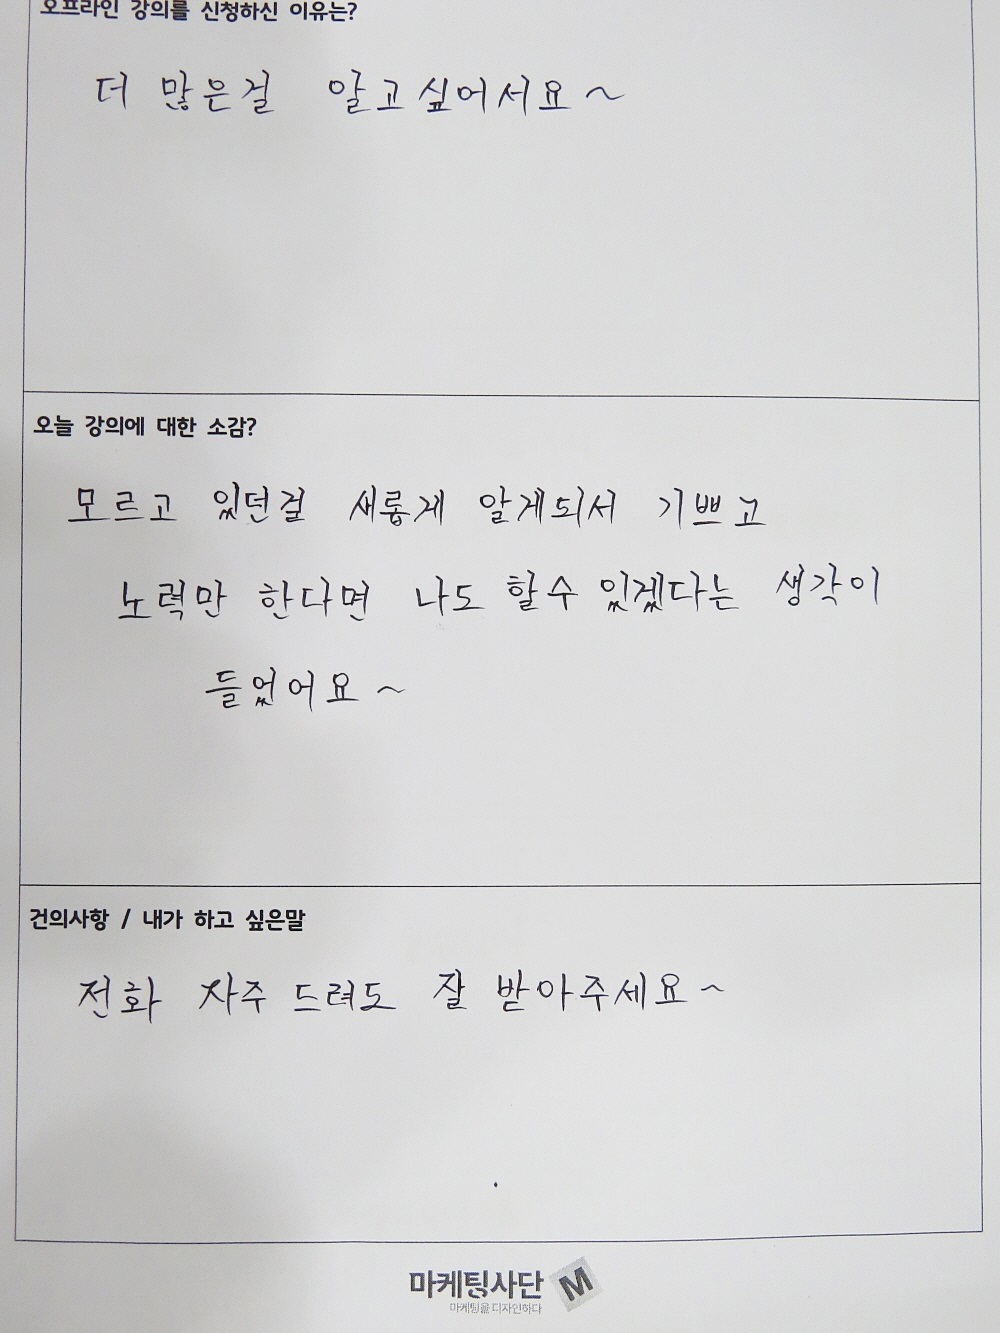 오프라인 강의를 신청하신 이유는?
더 많은걸 알고싶어서요~
오늘 강의에 대한 소감?
모르고 있던걸 새롭게 알게되서 기쁘고
노력만 한다면 나도 할수 있겠다는 생각이
들었어요~
건의사항 / 내가 하고 싶은말
전화 자주 드려도 잘 받아주세요~
마케팅사단 M
마케팅을 디자인하다